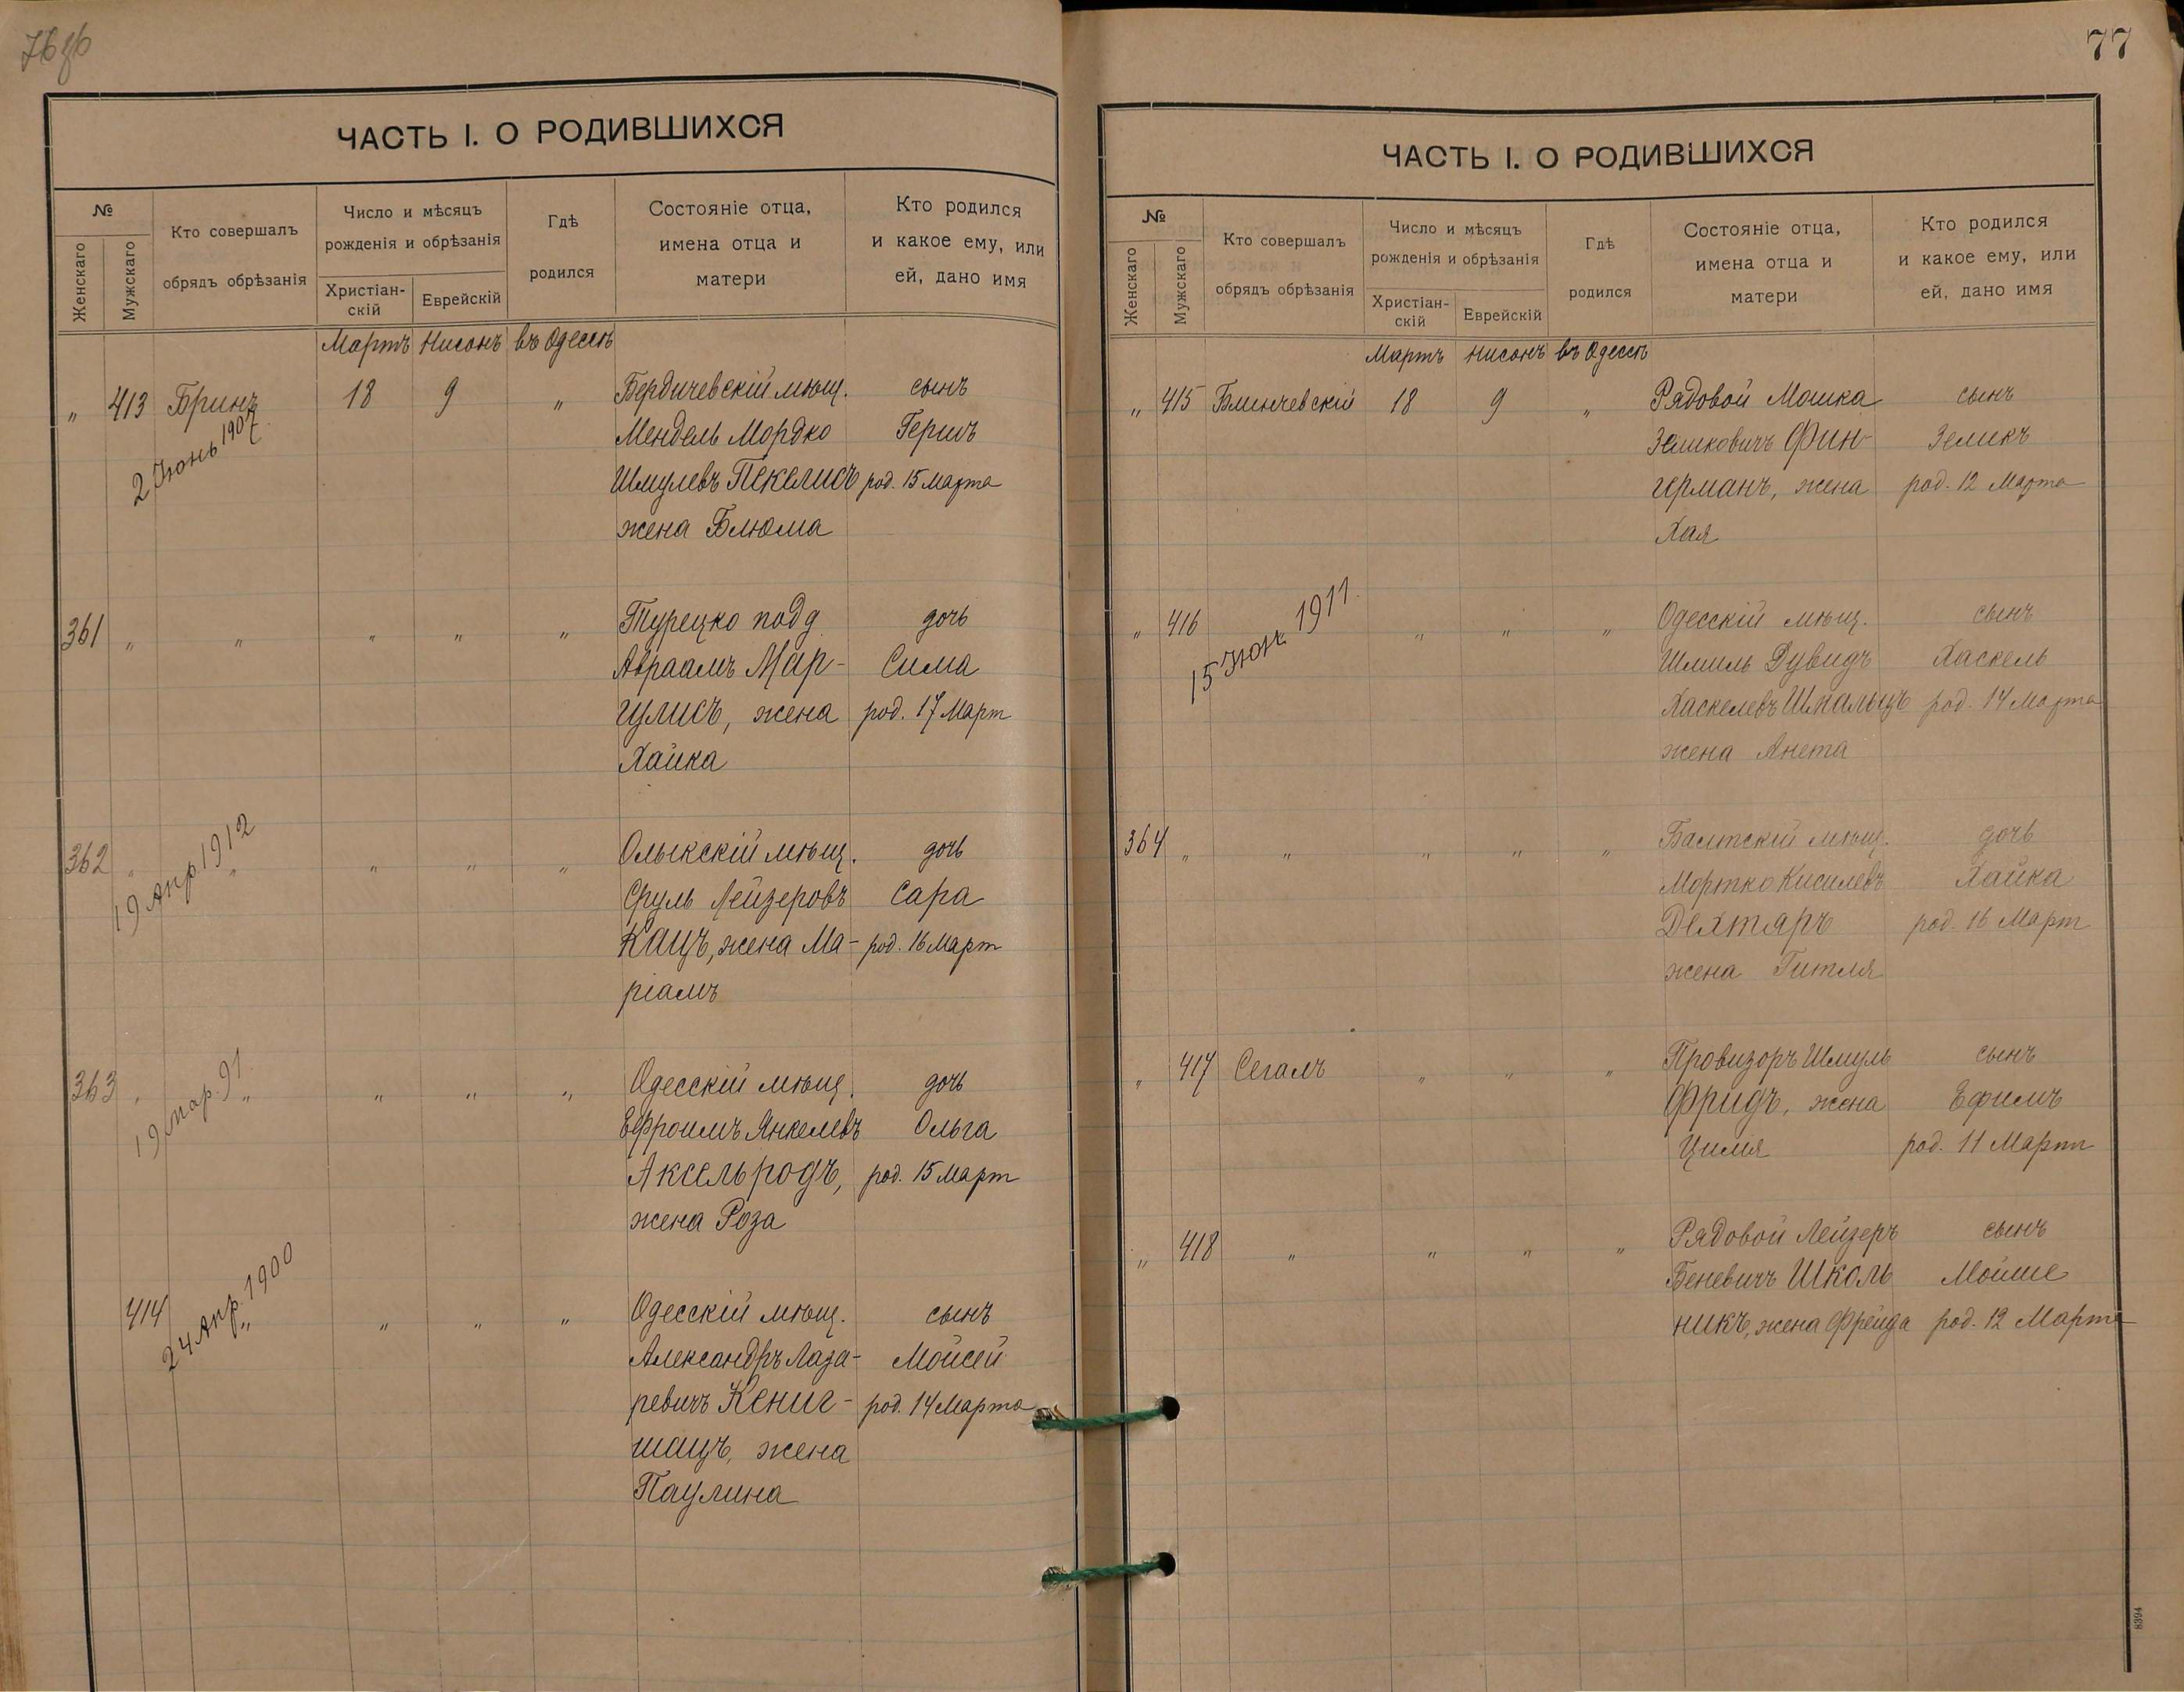 ЧАСТЬ I. О РОДИВШИХСЯ
№
Женскаго
Мужскаго
Кто совершалъ
обрядъ обрѣзанія
Число и мѣсяцъ
рожденія и обрѣзанія
Христіан-
скій
Еврейскій
Гдѣ
родился
Состояніе отца,
имена отца и
матери
Кто родился
и какое ему, или
ей, дано имя
Мартъ Нисонъ въ Одессѣ
„ 413 Бринъ 18 9 „ Бердичевскій мѣщ. сынъ
2 Іюнь 1907
Мендель Мордко Гершъ
Шмулевъ Пекелисъ род. 15 Марта
жена Блюма
361 „ „ „ „ „ Турецко подд. дочь
Авраамъ Мар- Сима
гулисъ, жена род. 17 Март
Хайка
362 „ „ „ „ „ Олыкскій мѣщ. дочь
19 Апр. 1912
Сруль Лейзеровъ Сара
Кацъ, жена Ма- род. 16 Март
ріамъ
363 „ „ „ „ „ Одесскій мѣщ. дочь
19 мар. 91.
Ефроимъ Янкелевъ Ольга
Аксельродъ, род. 15 Март
жена Роза
414 „ „ „ „ Одесскій мѣщ. сынъ
24 Апр. 1900
Александръ Лаза- Мойсей
ревичъ Кениг- род. 14 Марта
шацъ, жена
Паулина
77
ЧАСТЬ I. О РОДИВШИХСЯ
№
Женскаго
Мужскаго
Кто совершалъ
обрядъ обрѣзанія
Число и мѣсяцъ
рожденія и обрѣзанія
Христіан-
скій
Еврейскій
Гдѣ
родился
Состояніе отца,
имена отца и
матери
Кто родился
и какое ему, или
ей, дано имя
Мартъ Нисонъ въ Одессѣ
„ 415 Блинчевскій 18 9 „ Рядовой Мошка сынъ
Зеликовичъ Фин- Зеликъ
германъ, жена род. 12 Марта
Хая
„ 416 „ „ „ Одесскій мѣщ. сынъ
15 Іюн. 1911.
Шмиль Дувидъ Хаскель
Хаскелевъ Шмальцъ род. 14 Марта
жена Анета
364 „ „ „ „ „ Балтскій мѣщ. дочь
Мортко Кисилевъ Хайка
Дехтяръ род. 16 Март
жена Гитля
„ 417 Сегалъ „ „ „ Провизоръ Шмуль сынъ
Фридъ, жена Ефимъ
Цилія род. 11 Март
„ 418 „ „ „ „ Рядовой Лейзеръ сынъ
Беневичъ Школь Мойше
никъ, жена Фрейда род. 12 Марта
8394